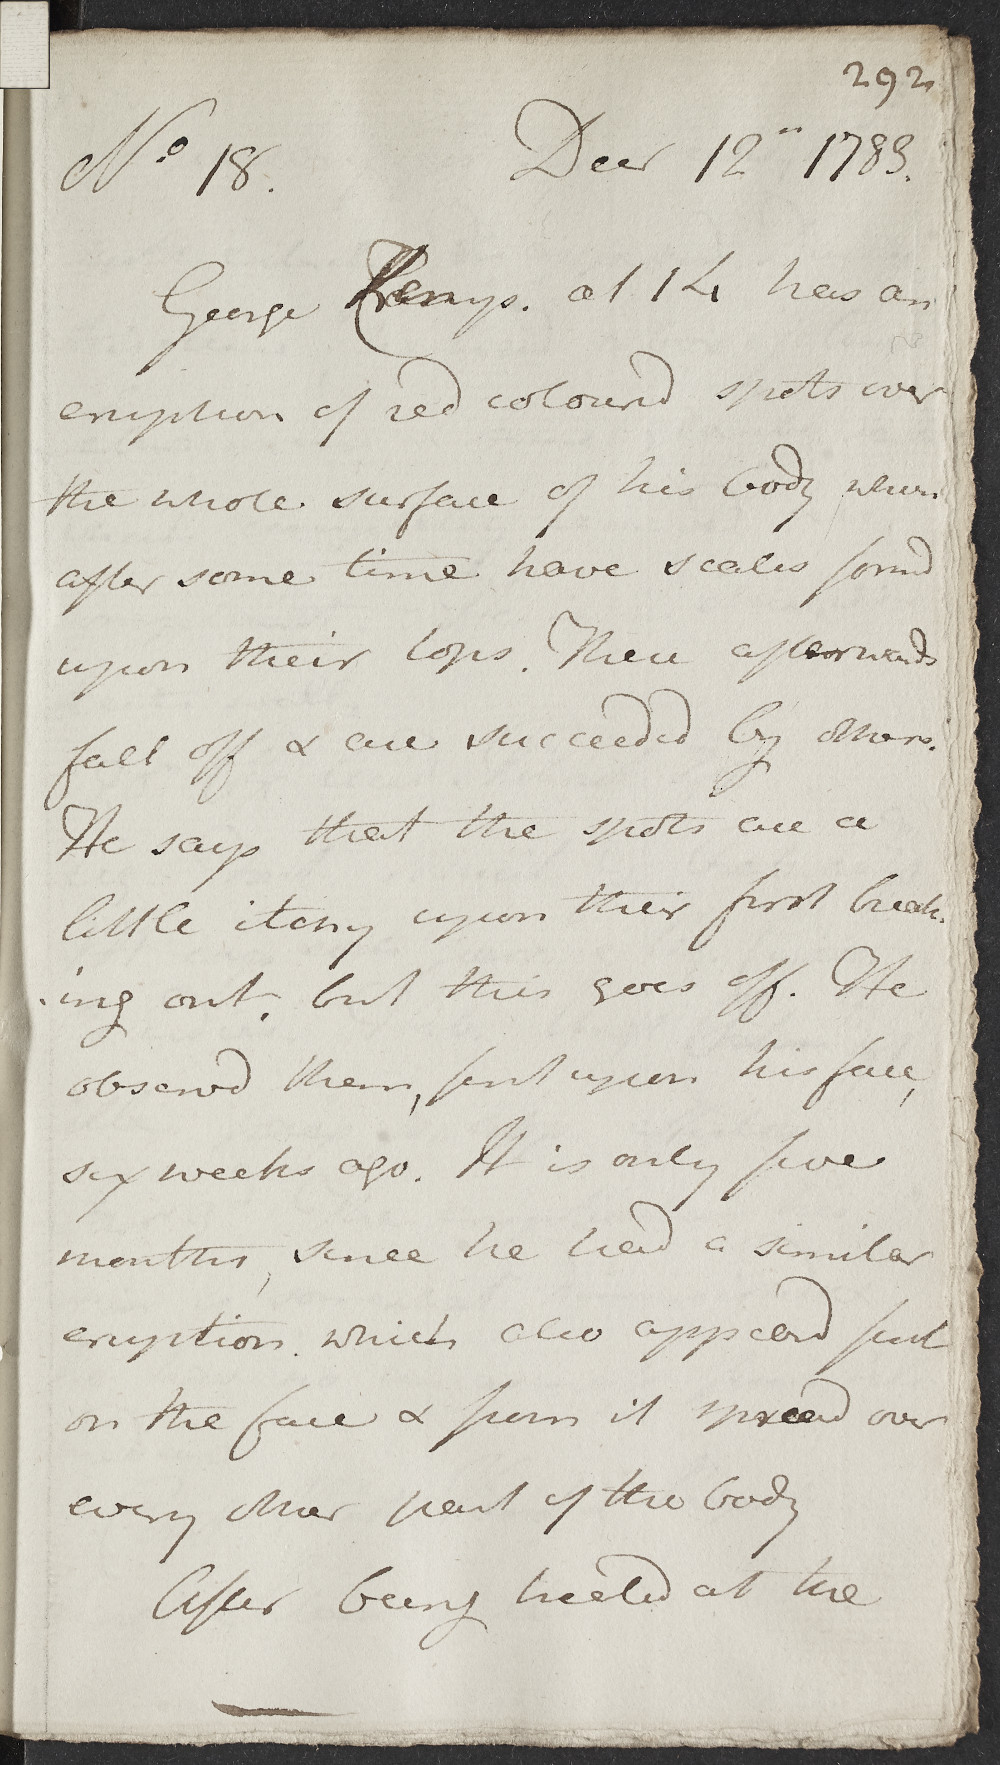 292
No 18. Decr 12th 1783.
George at 14 has an
eruption of red colourd spots over
the whole surface of his body which
after some time have scales formd
upon their tops. These afterwards
fall off & are succeeded by others.
He says that the spots are a
little itchy upon their first break-
-ing out, but this goes off. He
observd them, first upon his face,
six weeks ago. It is only five
months, since he had a similar
eruption which also appeard first
on the face & from it spread over
every other part of the body
After being healed at the